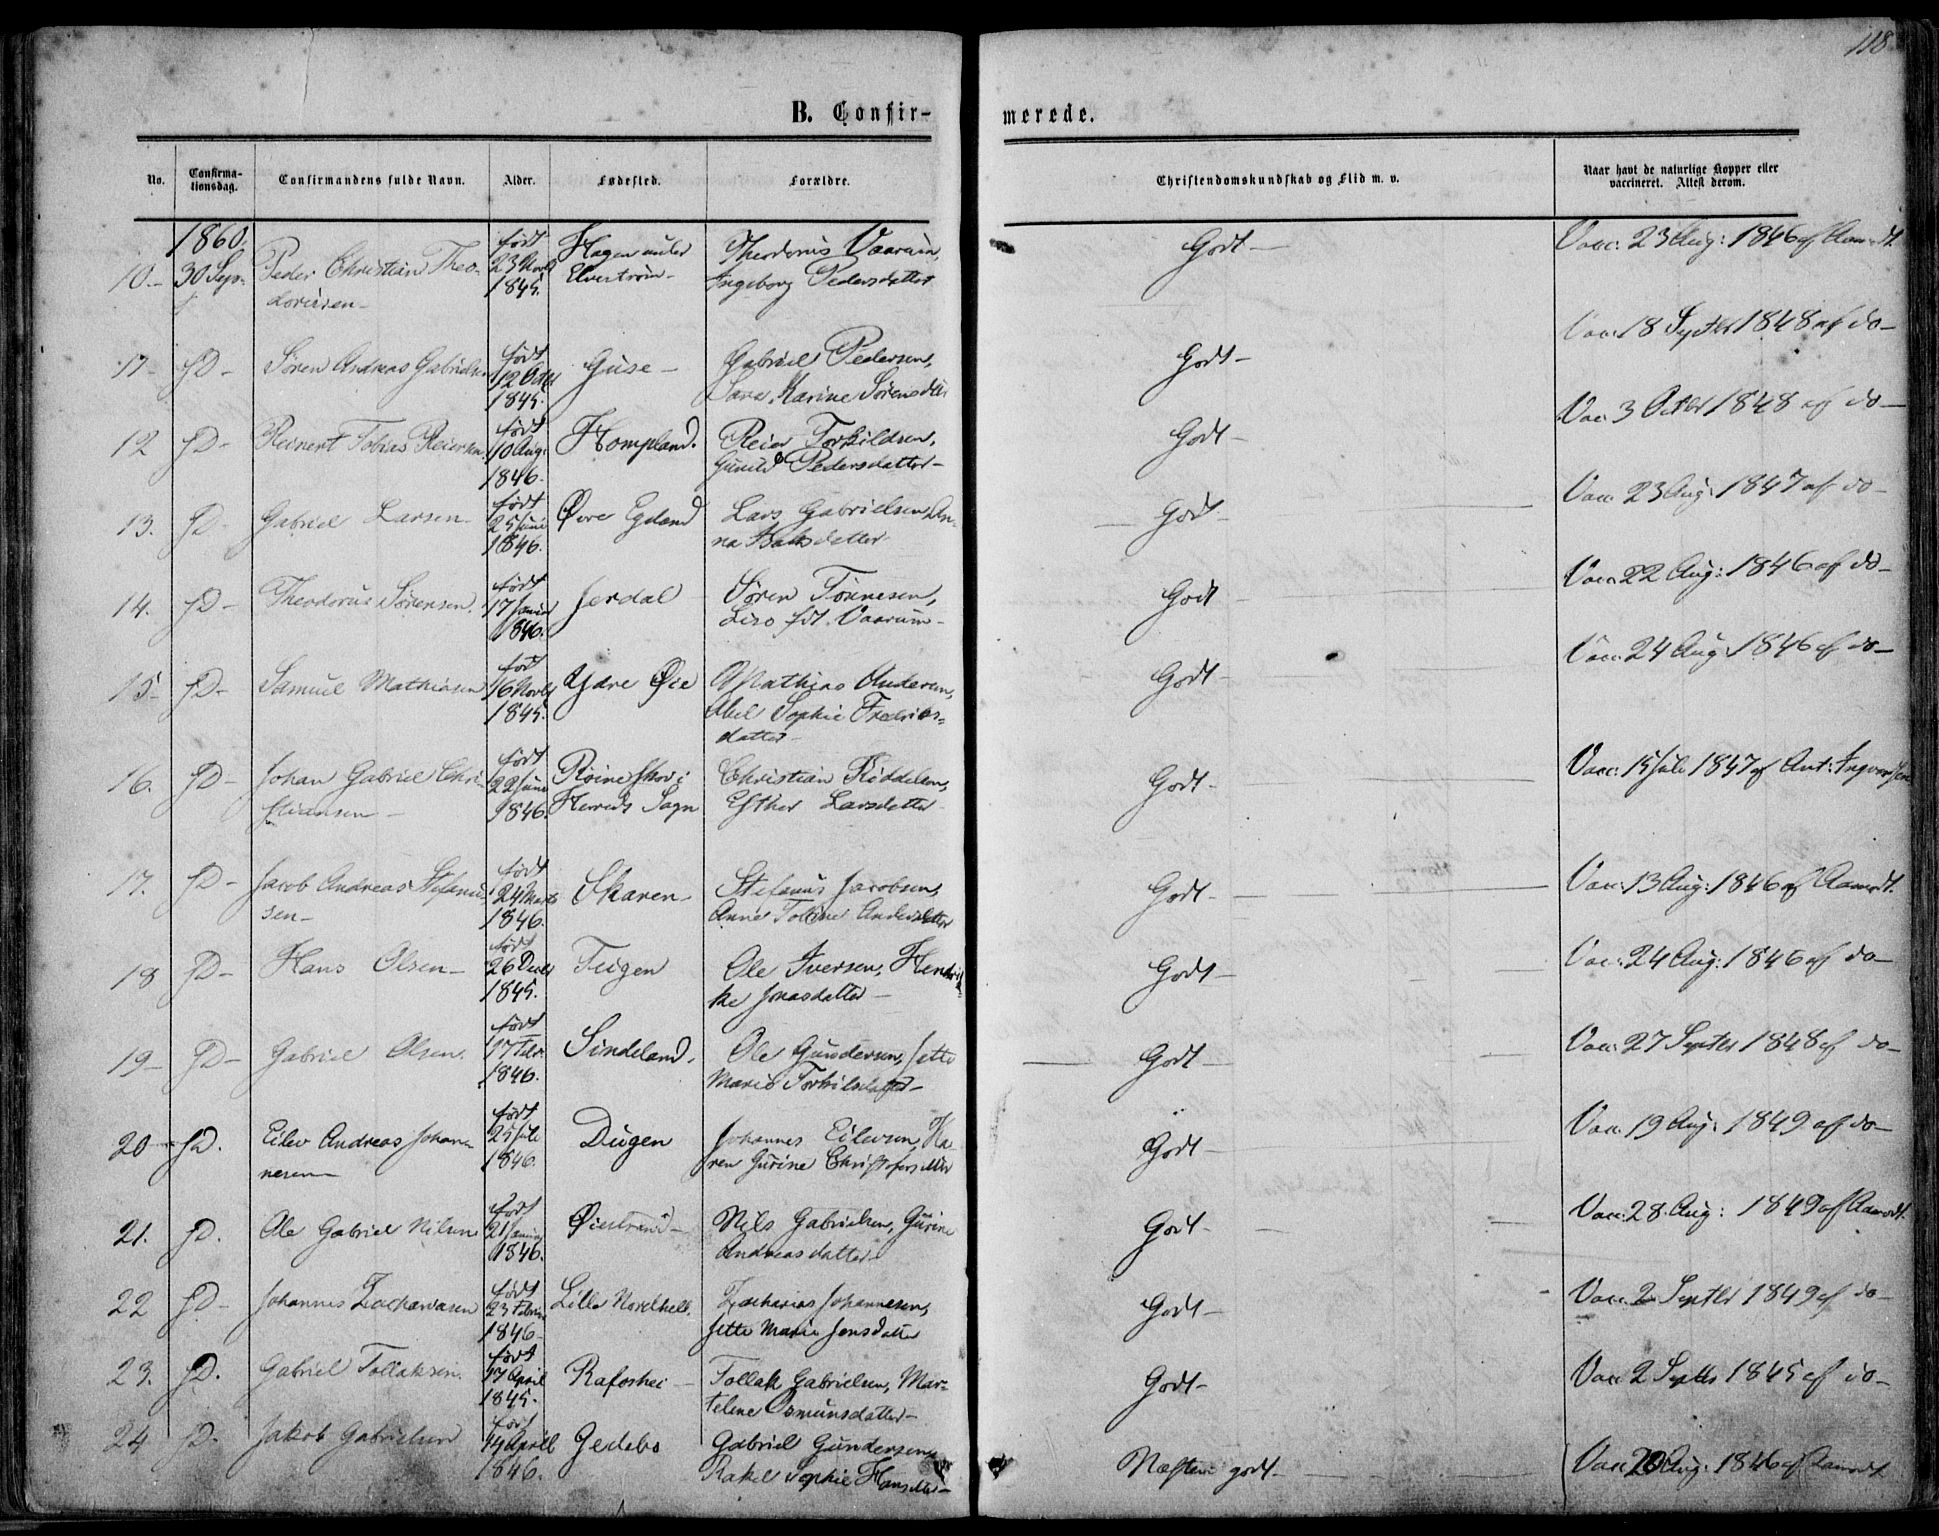 118
B. Confirmerede.
No. Confirmationsdag. Confirmandens fulde Navn. Alder. Fødested. Forældre. Christendomskundskab og Flid m. v. Naar havt de naturlige Kopper eller vaccineret. Attest derom.
1860.
10.- 30 Sept. Peder Christian Theo- født 23 Novbr Hagen under Theodorus Vaarum, Godt- Vacc: 23 Aug: 1846 af Aamodt
dorusen- 1845. Elvestrøm- Ingeborg Pedersdatter
11- D- Søren Andreas Gabrielsen født 12 Octbr Guse- Gabriel Pedersen, Godt- Vacc: 18 Septbr 1848 af do-
1845. Sara Karine Sørensdtter
12 D- Reinert Tobias Reiersen. født 10 Aug: Hompland. Reier Torkildsen, Godt- Vacc 3 Octbr 1848 af do-
1846. Gunild Pedersdatter-
13. D- Gabriel Larsen- født 25 Juni Øvre Egeland Lars Gabrielsen, An- Godt- Vacc. 23 Aug: 1847 af do-
1846. na datter-
14. D- Theodorus Sørensen. født 17 Januar Jerdal Søren Tønnesen, Godt Vacc: 22 Aug: 1846 af do-
1846. Lisa fdt. Vaarum-
15- D- Samuel Mathiasen født 16 Novbr Ydre Øie Mathias Andersen, Godt- Vacc: 24 Aug: 1846 af do-
1845. Abel Sophie Fredriks-
datter-
16. D- Johan Gabriel Chri- født 22 Juni Røineskov i Christian Siddelsen, Godt- Vacc: 15 Juli 1847 af Ant: Ingvordsen
stiansen- 1846. Herreds Sogn Esther Larsdatter-
17. D- Jacob Andreas Stefanus- født 24 Marts Skaren- Stefanus Jacobsen, Godt- Vacc: 13 Aug: 1846 af Aamodt.
sen- 1846. Anne Tobine Andersdatter
18 D- Hans Olsen- født 26 Decbr Fugen Ole Iversen, Hendrik- Godt- Vacc: 24 Aug: 1846 af do-
1845. ke Jonasdatter-
19- D- Gabriel Olsen. født 17 Febr. Sindeland. Ole Gundersen, Jette Godt- Vacc: 27 Septbr 1848 af do-
1846. Marie Torkilsdatter-
20- D. Eilev Andreas Johan- født 25 Juli Dugen Johannes Eilevsen, Ka- Godt- Vacc. 19 Aug: 1849 af do-
nesen- 1846. ren Gurine Christofersdatter
21. D. Ole Gabriel Nilsen født 21 Januar Øiestrand- Nils Gabrielsen, Gurine Godt- Vacc: 28 Aug: 1849 af Aamodt.
1846. Andreasdatter-
22 D- Johannes Zachariasen født 23 Februar Lille Nordhell. Zacharias Johannesen, Godt- Vacc. 2 Septbr 1849 af do-
1846- Jette Marie Jonsdatter
23. D. Gabriel Tollaksen. født 17 April Rafoshei- Tollak Gabrielsen, Mar- Godt- Vacc 2 Septbr 1845 af do-
1845. telene Osmunsdatter-
24 D- Jakob Gabrielsen født 14 April Gedebø Gabriel Gundersen, Næsten godt- Vacc 20 Aug: 1846 af Aamodt
1846. Rakel Sophie Hansdtter-